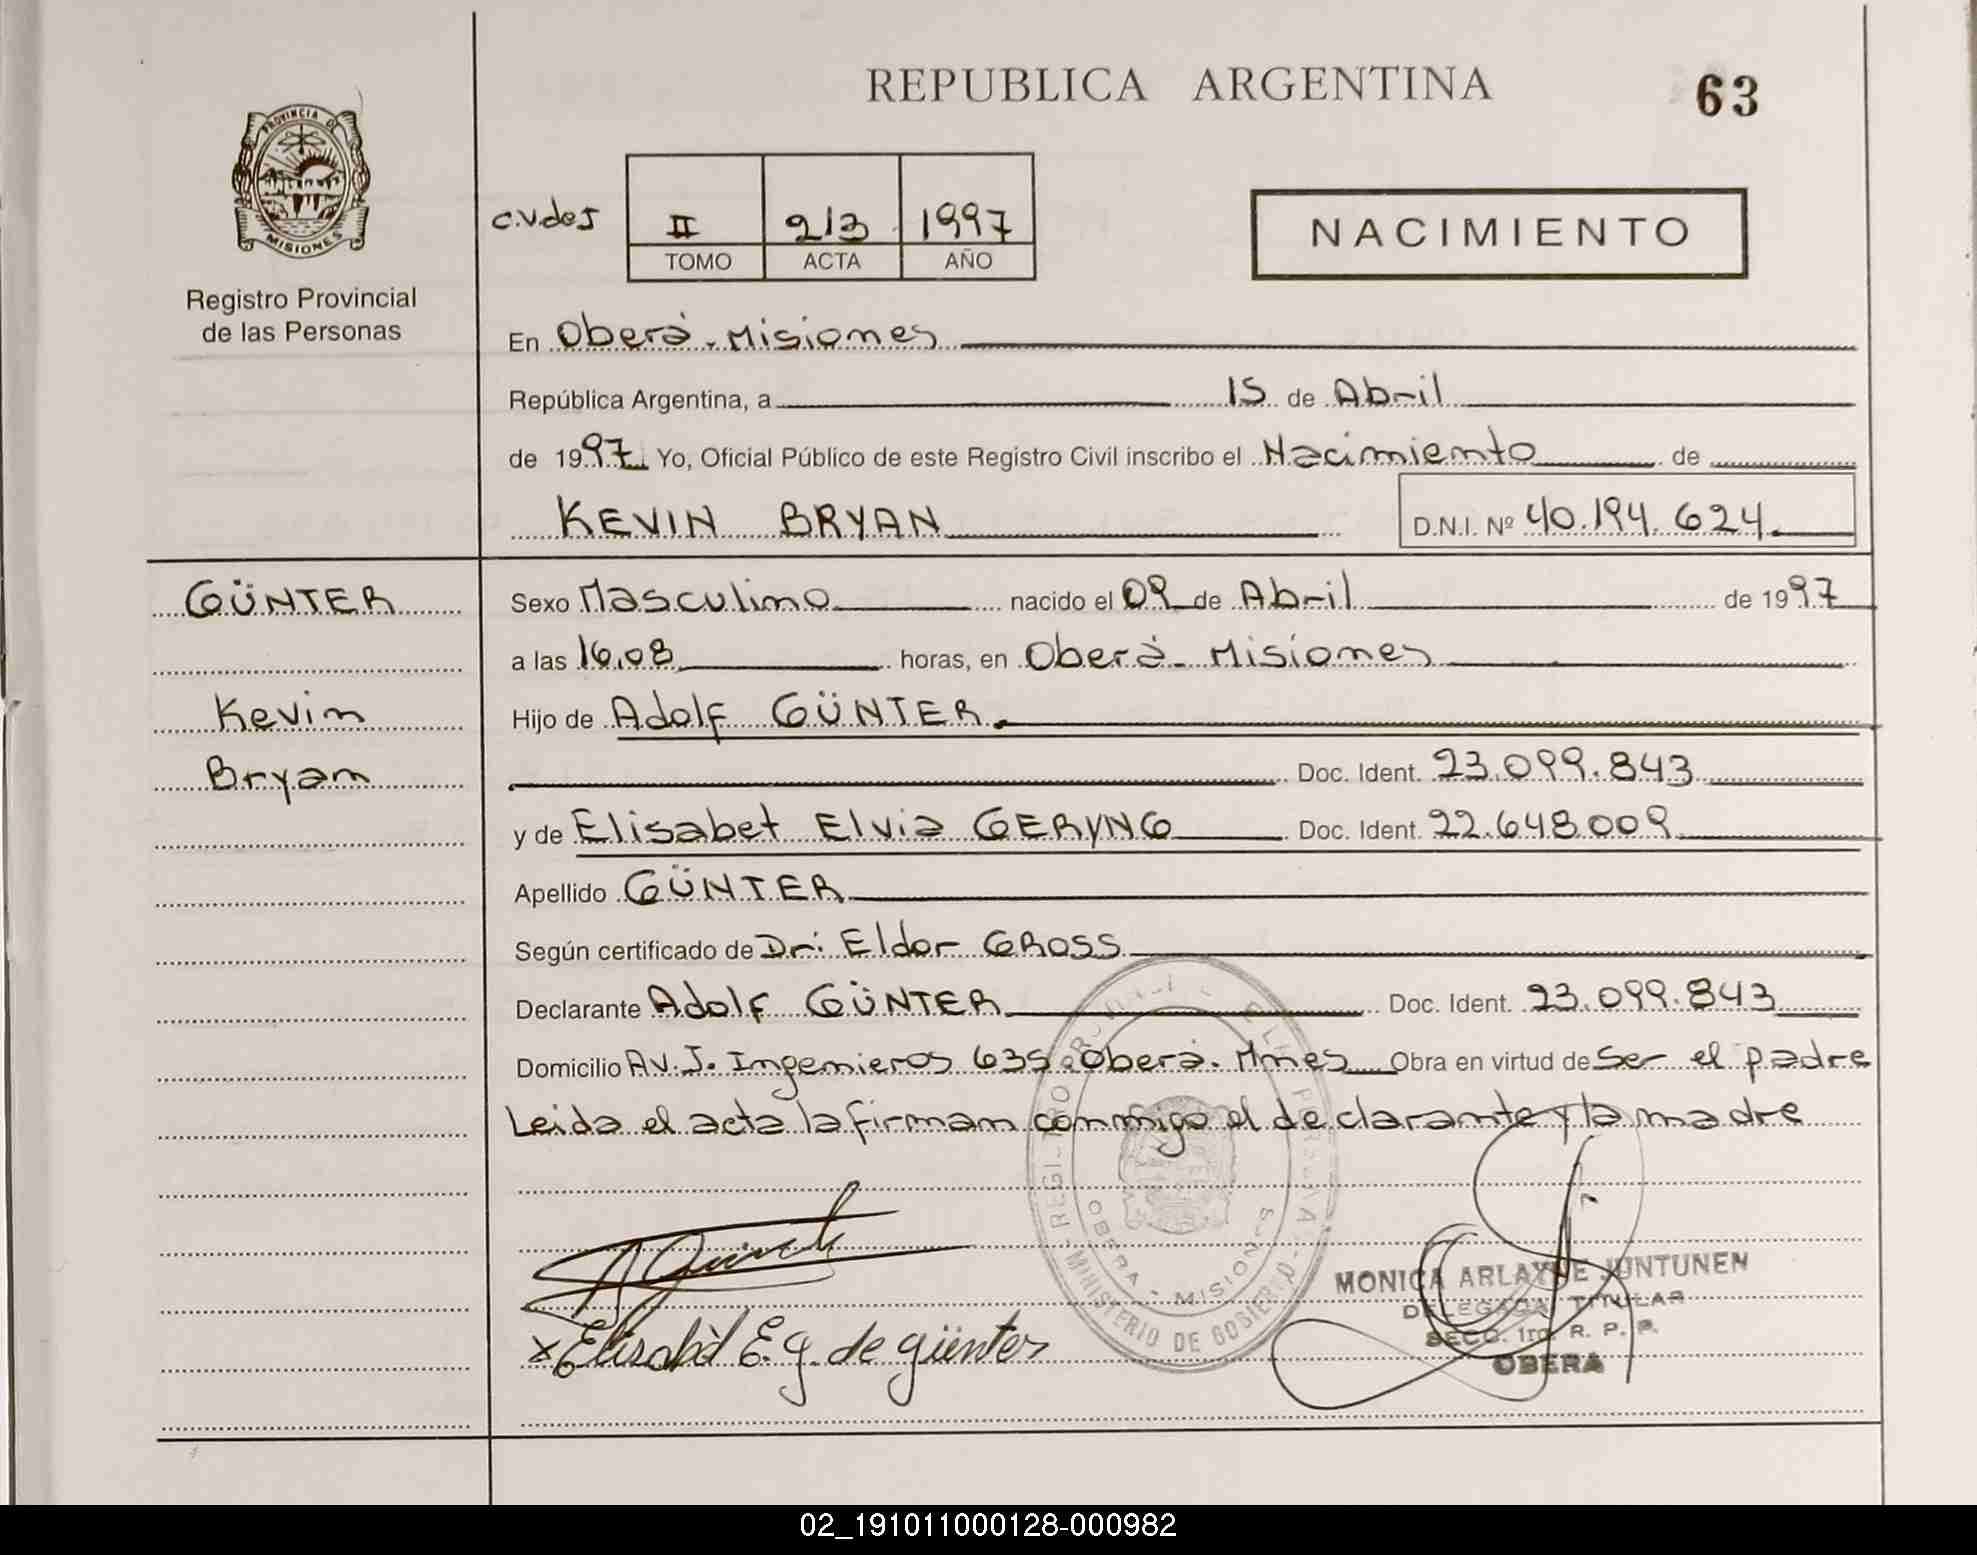 REPUBLICA ARGENTINA
63
PROVINCIA DE
MISIONES
Registro Provincial
de las Personas
c.v.des
II 213 1997
TOMO ACTA AÑO
NACIMIENTO
En Oberá. Misiones
República Argentina, a 15 de Abril
de 1997 Yo, Oficial Público de este Registro Civil inscribo el Nacimiento de
KEVIN BRYAN D.N.I. Nº 40.194.624.
GÜNTER
Kevin
Bryan
Sexo Masculino nacido el 09 de Abril de 1997
a las 16,08 horas, en Oberá - Misiones
Hijo de Adolf GÜNTER.
Doc. Ident. 23.099.843
y de Elisabet Elvia GERYNG Doc. Ident. 22.648.009
Apellido GÜNTER
Según certificado de Dr: Eldor GROSS
Declarante Adolf GÜNTER Doc. Ident. 23.099.843
Domicilio Av. J. Ingenieros 635. Oberá. Mnes Obra en virtud de Ser el padre
Leida el acta la firman conmigo el declarante y la madre
MINISTERIO DE GOBIERNO
OBERA - MISIONES
x Elisabet E. G. de günter
MONICA ARLAYNE JUNTUNEN
DELEGADA TITULAR
SECC. 1ra. R. P. P.
OBERA
02_191011000128-000982